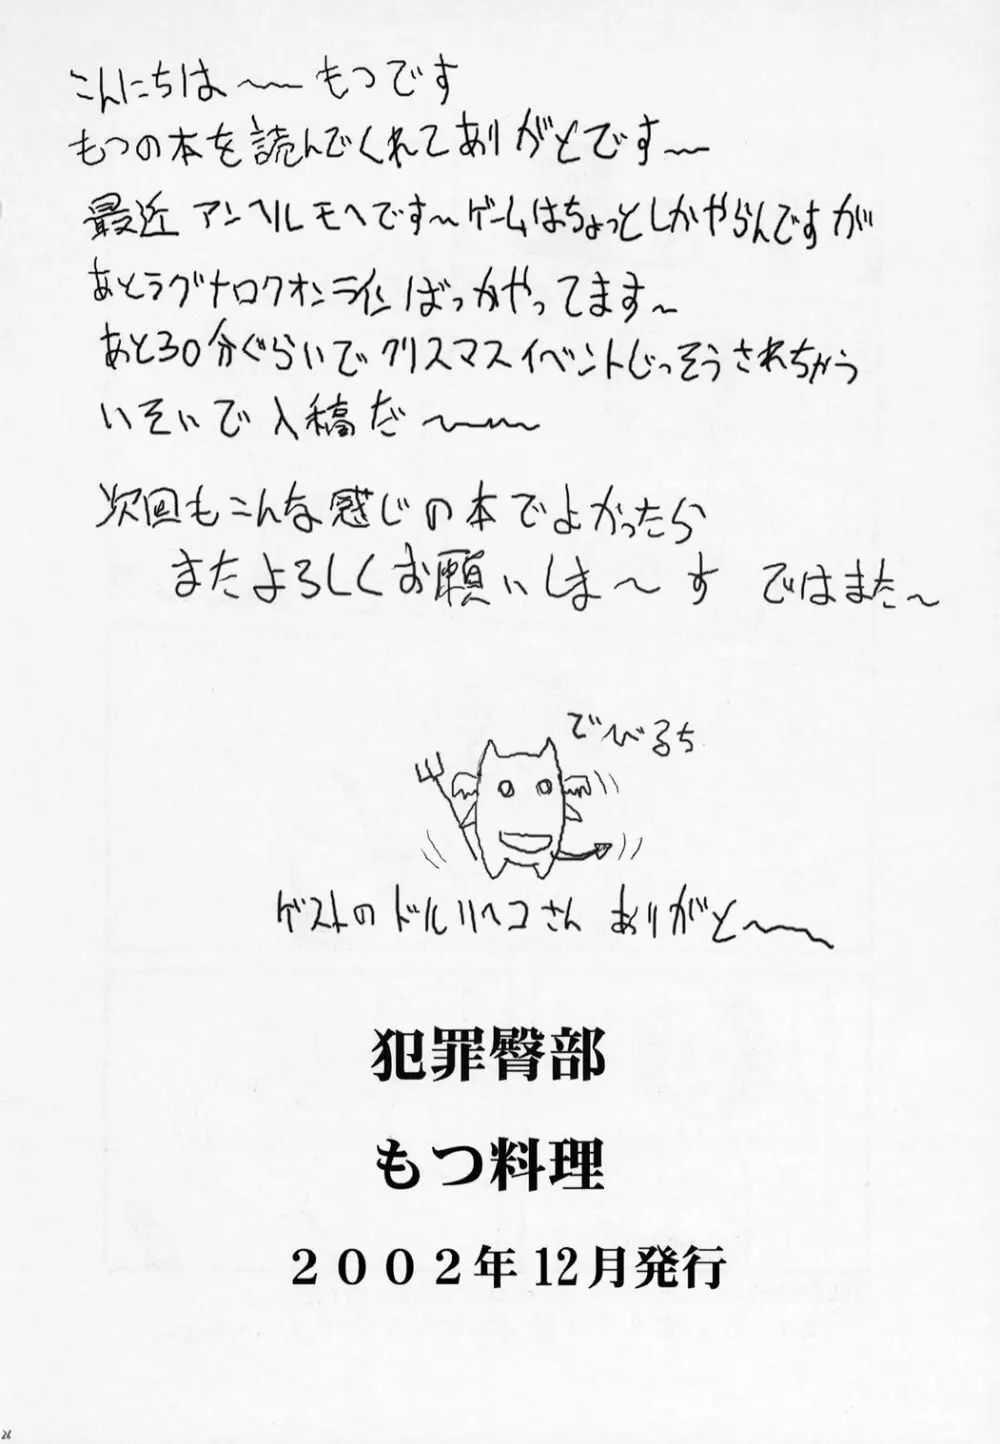 こんにちは〜〜もつです
もつの本を読んでくれてありがとです〜
最近アンヘルモヘです〜ゲームはちょっとしかやらんですが
あとラグナロクオンラインばっかやってます〜
あと30分ぐらいでクリスマスイベントじっそうされちゃう
いそいで入稿だ〜〜〜
次回もこんな感じの本でよかったら
またよろしくお願いしま〜す ではまた〜
でびるち
ゲストのドルリヘコさん ありがと〜〜
犯罪臀部
もつ料理
２００２年12月発行
26